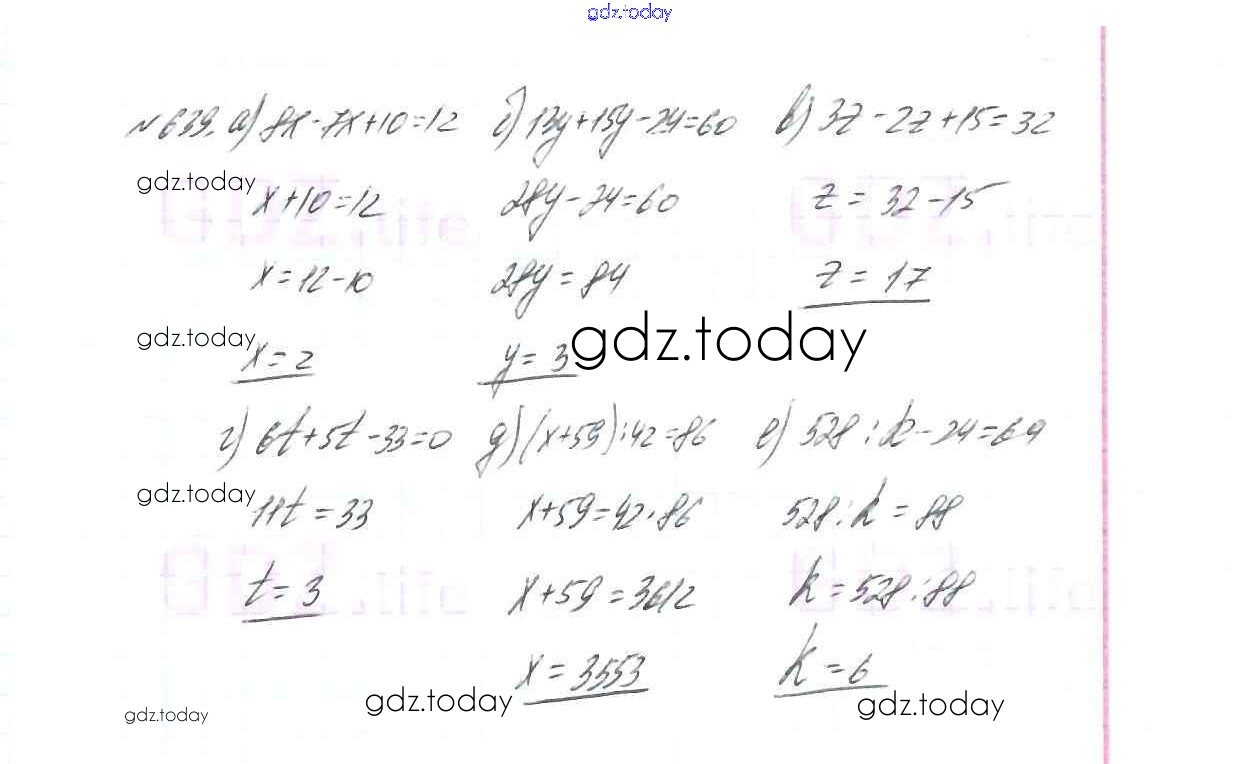 gdz.today
№639. а) 8x-7x+10=12 б) 13y+15y-24=60 в) 3z-2z+15=32
gdz.today
x+10=12 28y-24=60 z=32-15
GDZ.life GDZ.life
x=12-10 28y=84 z=17
gdz.today
x=2 y=3 gdz.today
г) 6t+5t-33=0 д) (x+59):42=86 е) 528:k-24=64
gdz.today
11t=33 x+59=42·86 528:k=88
GDZ.life GDZ.life
t=3 x+59=3612 k=528:88
x=3553 k=6
gdz.today gdz.today gdz.today